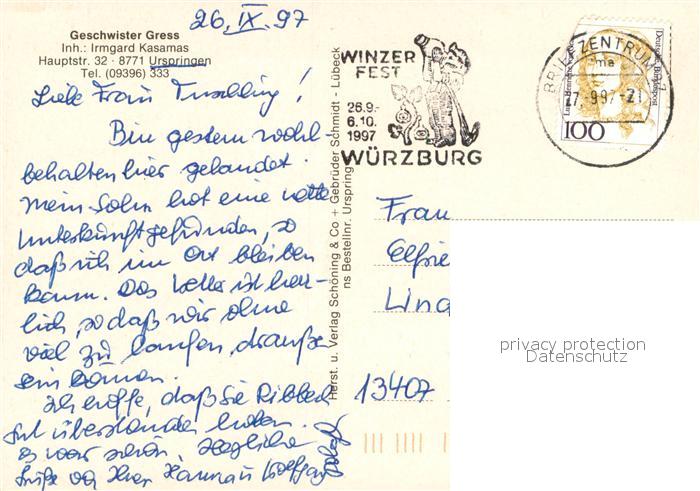 26. IX. 97
Geschwister Gress
Inh.: Irmgard Kasamas
Hauptstr. 32 · 8771 Urspringen
Tel. (09396) 333
Liebe Frau !
Bin gestern wohl-
behalten hier gelandet.
Mein Sohn hat eine nette
Unterkunft gefunden, so
daß ich im Ort bleiben
kann. Das Wetter ist herr-
lich, so daß wir ohne
viel zu laufen, draußen
sein können.
Ich hoffe, daß Sie Ribbeck
gut überstanden haben.
Es war schön. Herzliche
Grüße von Ihrer Hanna u. Wolfgang
Herst. u. Verlag Schöning & Co + Gebrüder Schmidt - Lübeck
ns Bestellnr. Urspring
WINZER
FEST
26.9.-
6.10.
1997
WÜRZBURG
BRIEFZENTRUM 97
27.9.97-21
Deutsche Bundespost
100
Frau
Elfrie
Lind
13407
privacy protection
Datenschutz